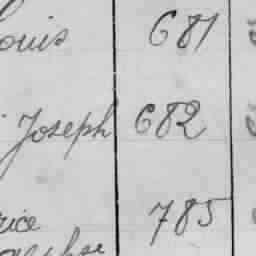 ouis 681
Joseph 682
rice 785